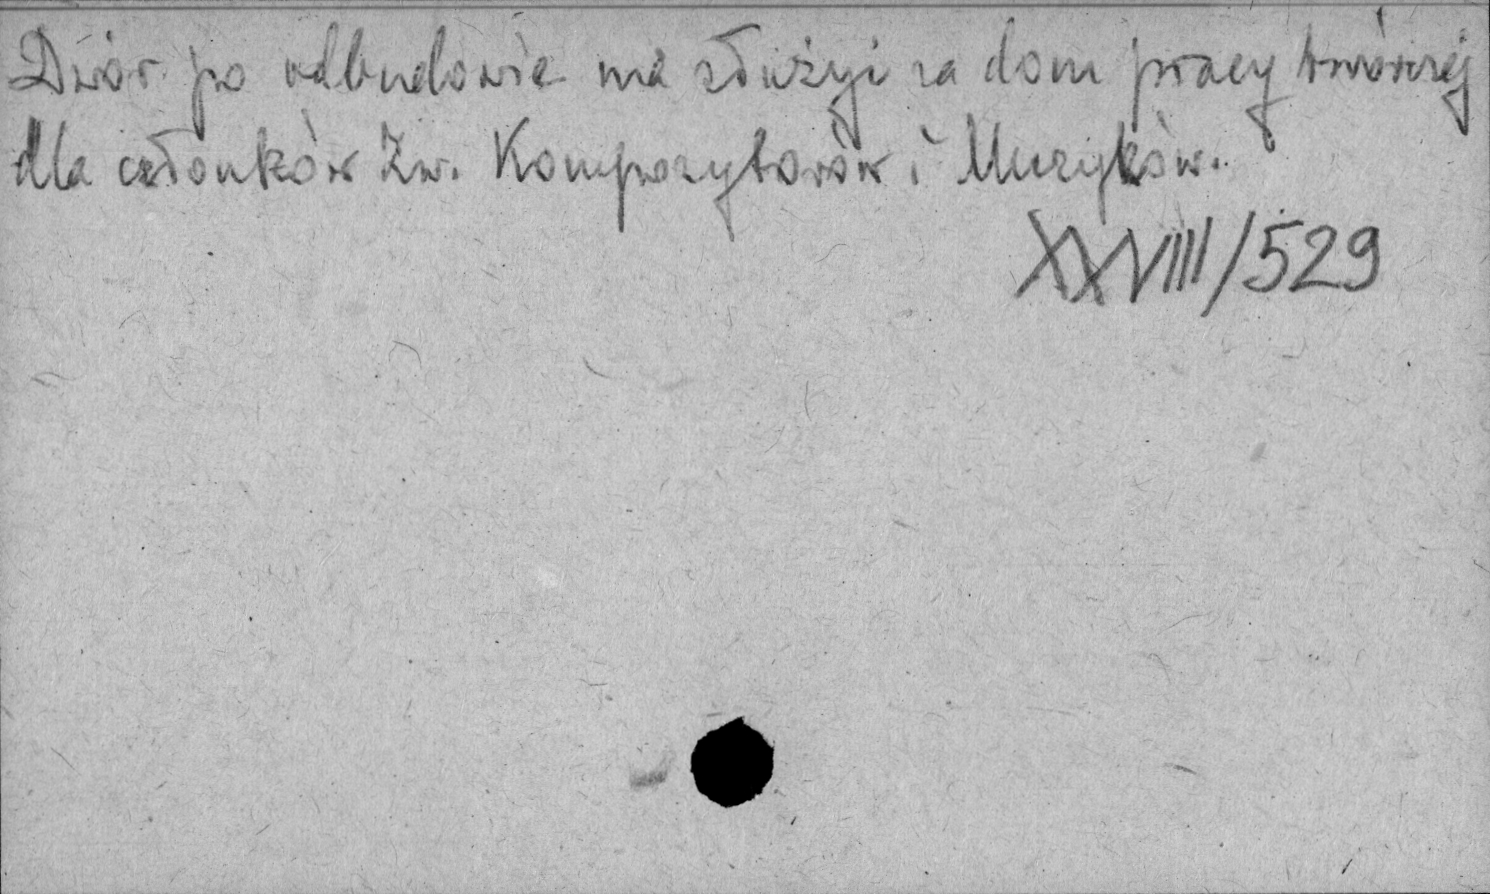 Dwór po odbudowie ma służyć za dom pracy twórczej
dla członków Zw. Kompozytorów i Muzyków.
XXVIII/529